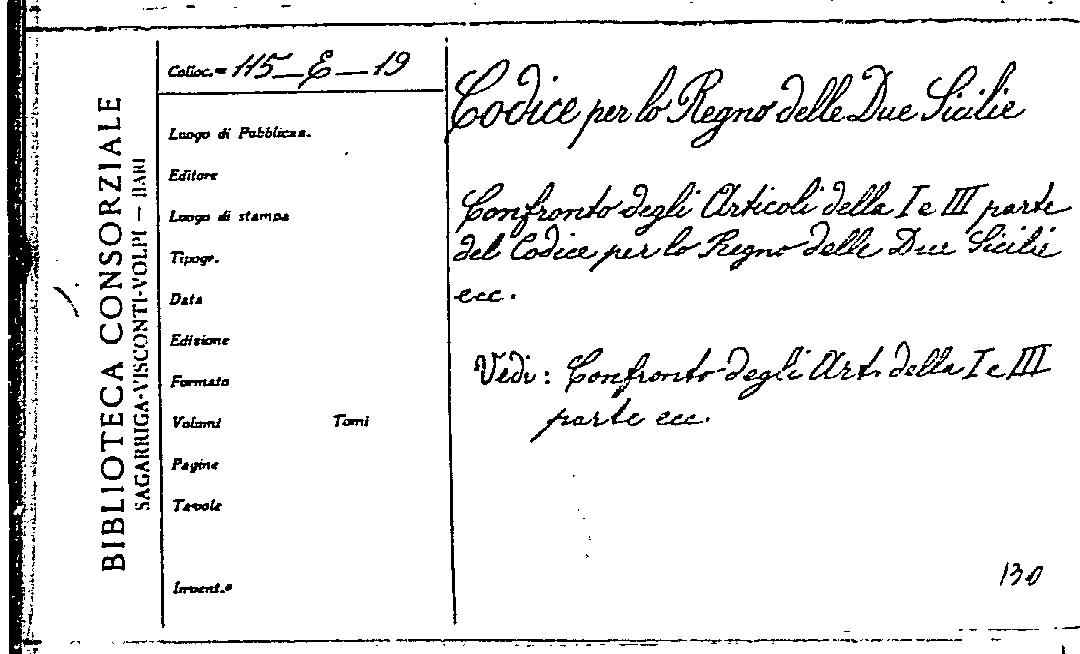 BIBLIOTECA CONSORZIALE
SAGARRIGA-VISCONTI-VOLPI — BARI
Colloc.ne 115-E-19
Luogo di Pubblicaz.
Editore
Luogo di stampa
Tipogr.
Data
Edizione
Formato
Volumi Tomi
Pagine
Tavole
Invent.o
Codice per lo Regno delle Due Sicilie
Confronto degli Articoli della I e III parte
del Codice per lo Regno delle Due Sicilie
ecc.
Vedi: Confronto degli Art. della I e III
parte ecc.
130